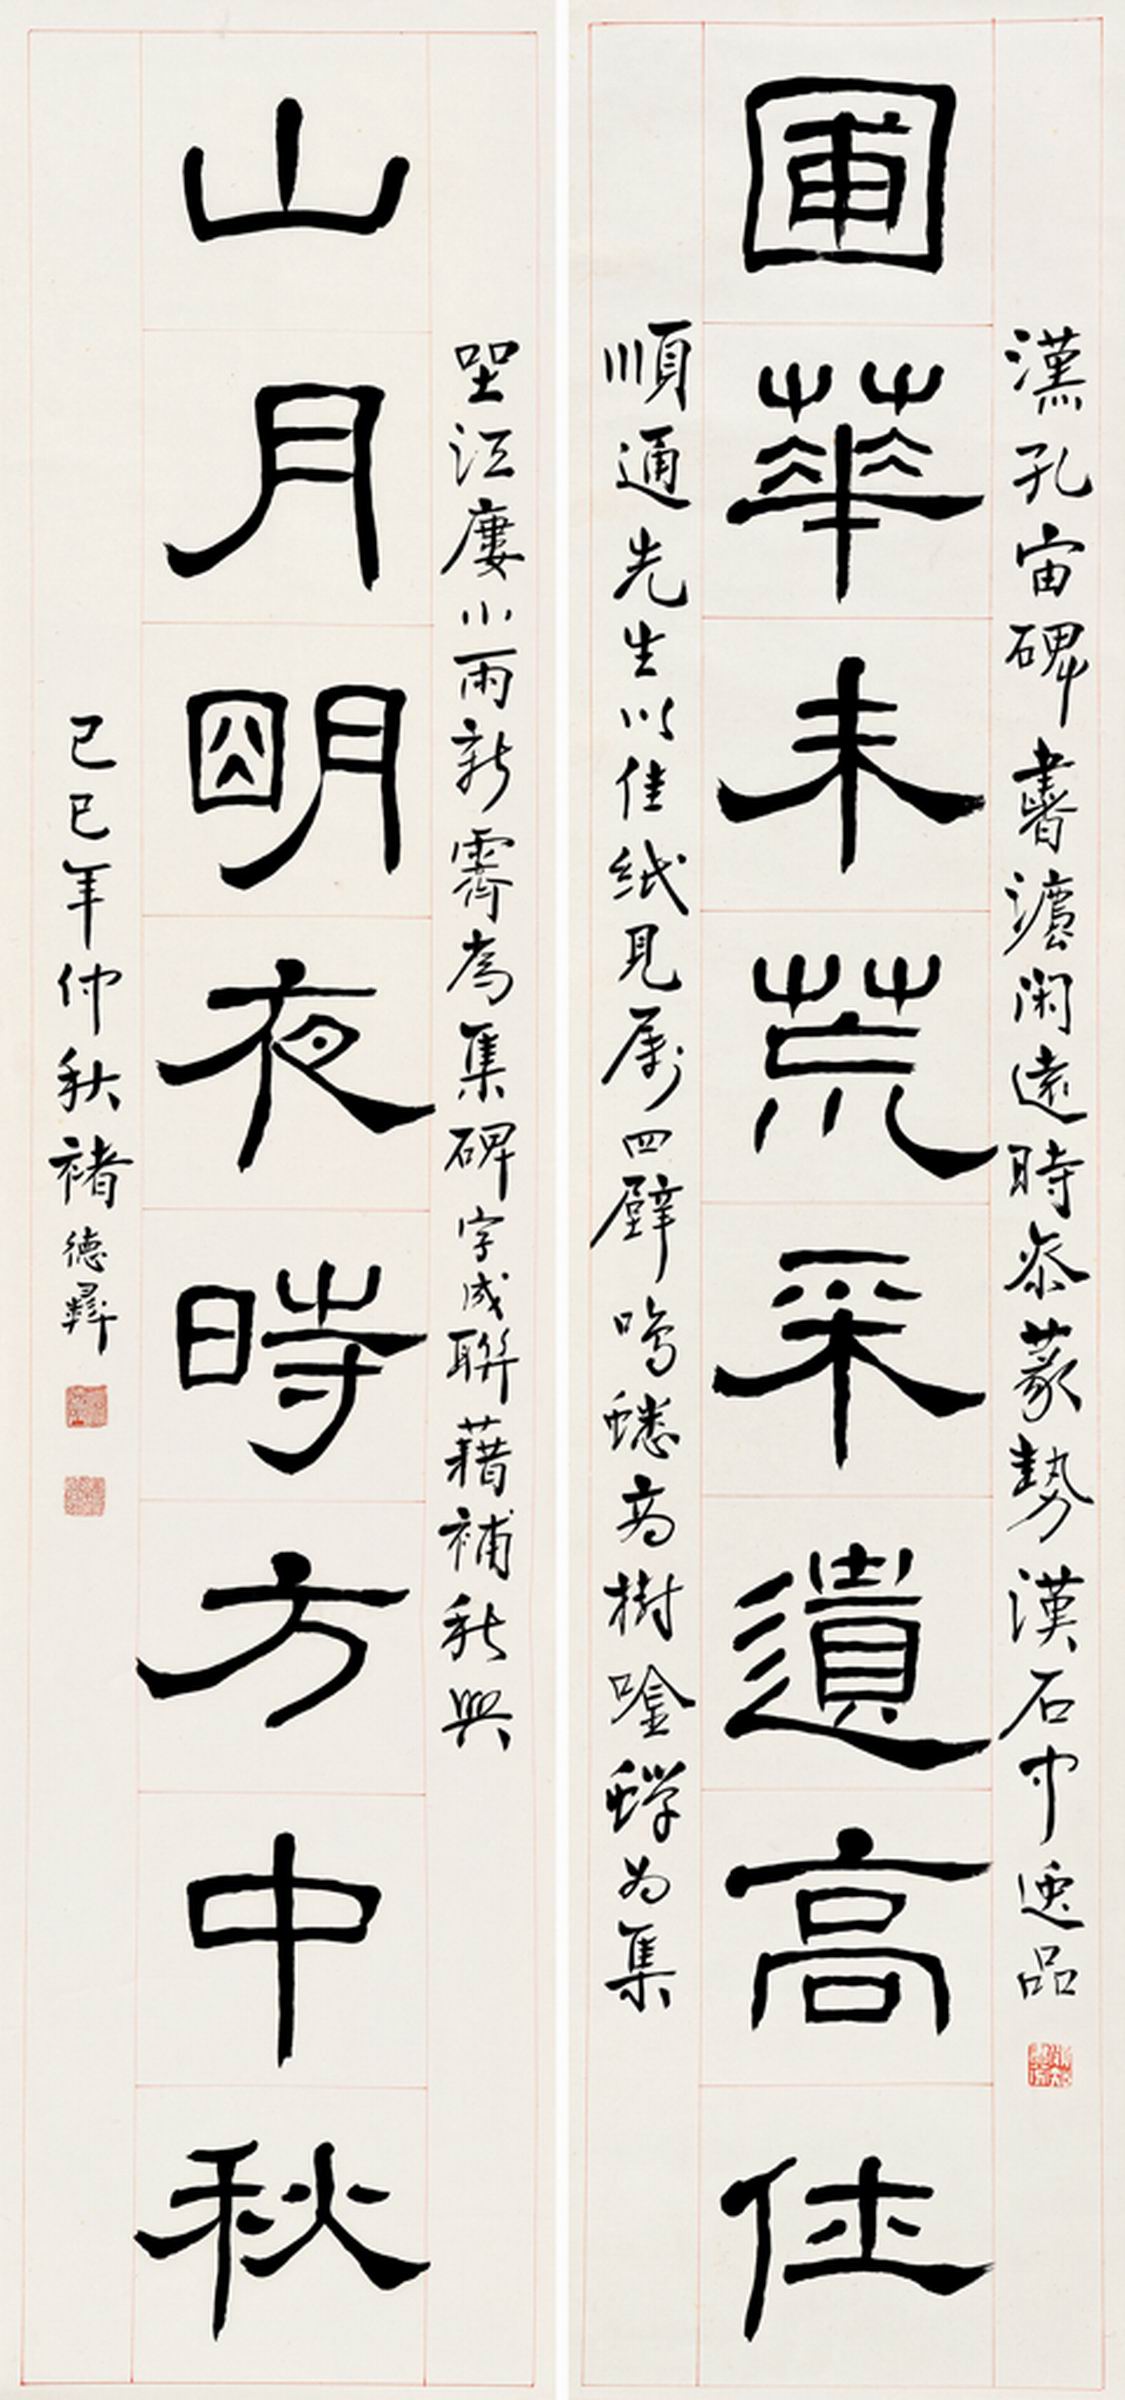 漢孔宙碑書灋閑遠時參篆勢漢石中逸品
圃華未荒采遺高佳
順通先生以佳紙見屬四壁鳴蟋高樹唫蟬為集
坐江廔小雨新霽為集碑字成聯藉補秋興
山月明夜時方中秋
己巳年仲秋褚德彝